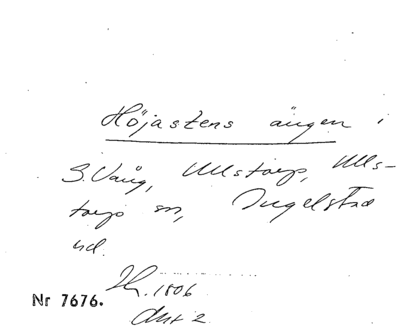 Höjastens ängen i
S. Vång, Ullstorp, Ulls-
torp sn, Ingelstad
hd.
Th. 1806
Nr 7676.
Akt 2